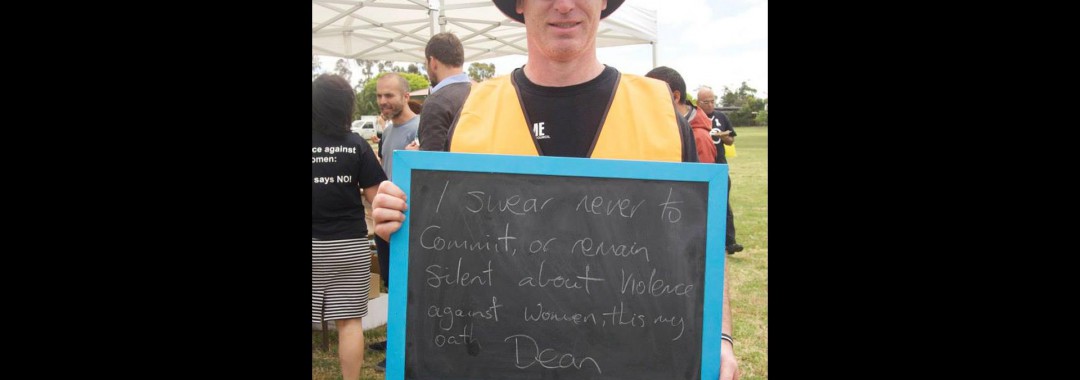 ce against
omen:
says NO!
ME
I swear never to
Commit, or remain
Silent about Violence
against Women, this my
oath Dean